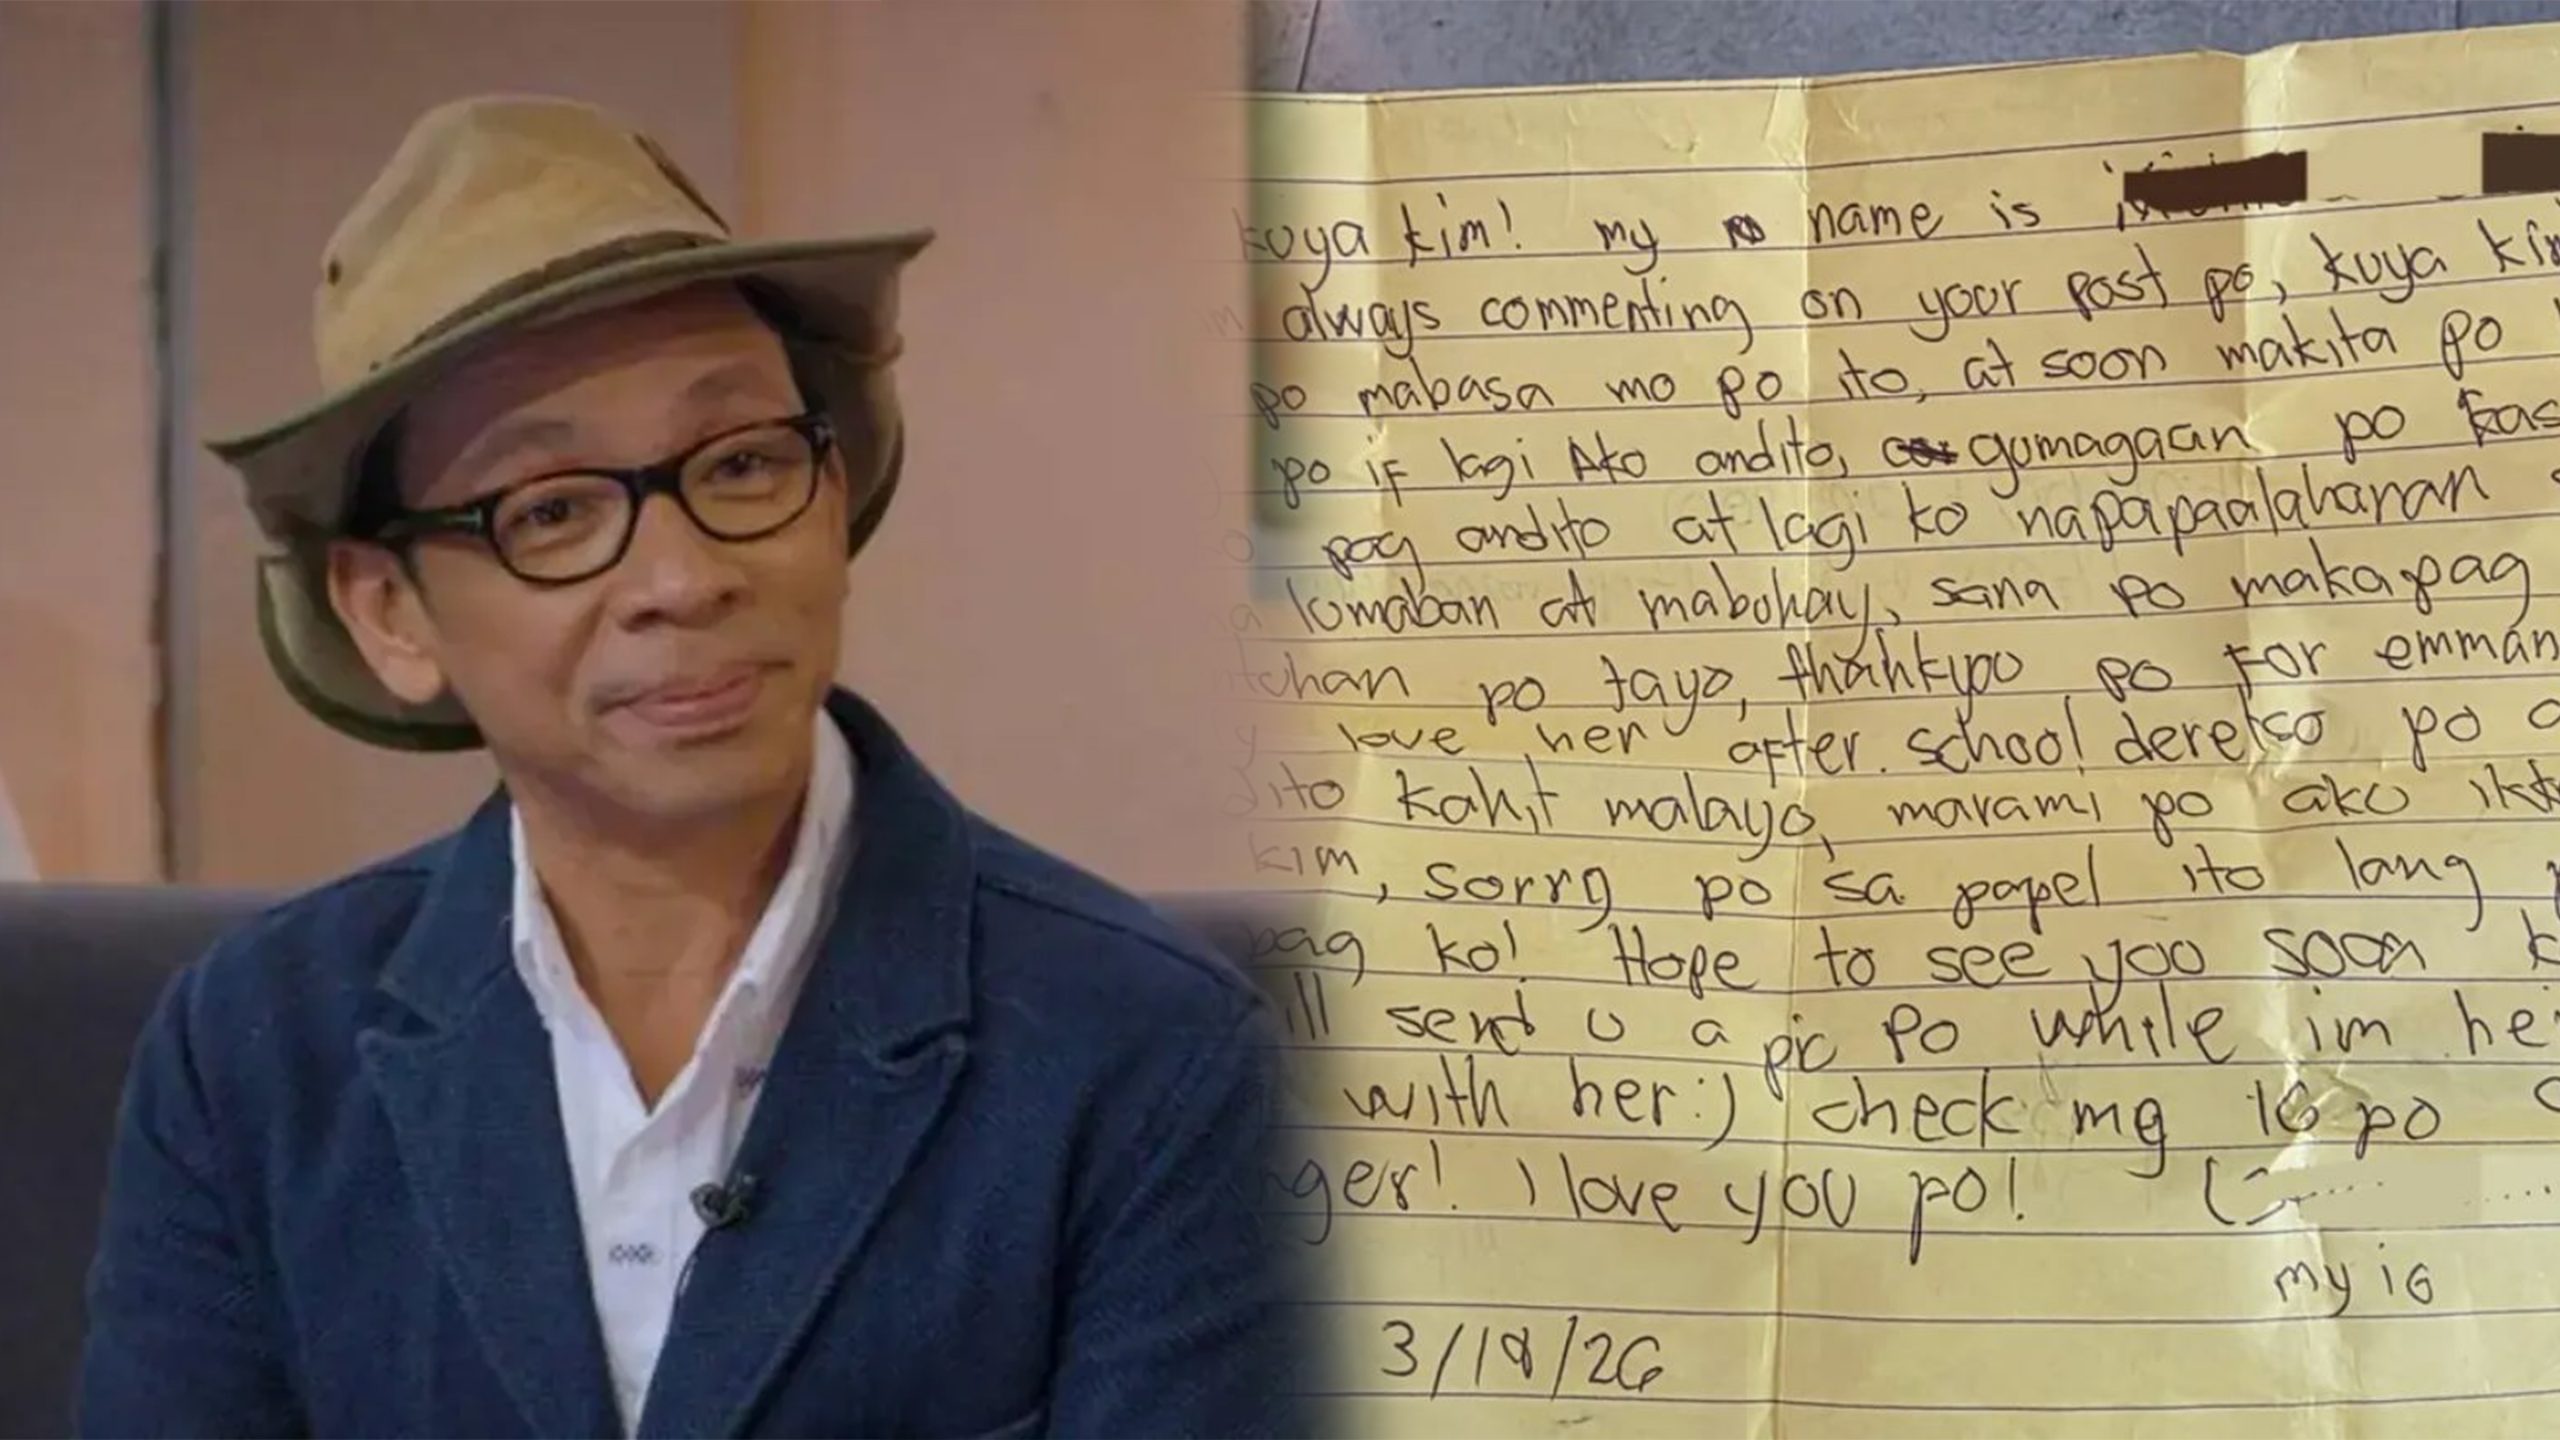 kuya kim! my name is
always commenting on your post po, kuya kim
po mabasa mo po ito, at soon makita po
po if lagi Ako andito, gumagaan po kas
pag andito at lagi ko napapaalaharan
lumaban at mabuhay, sana po makapag
tuhan po tayo, thahkyoo po For emman
love her after. school deretso po
dito kahit malayo, marami po ako
kim, sorry po sa papel ito lang
bag ko! Hope to see you soon
ill send u a pic po while im he
with her:) check my ig po
nger! I love you po!
my ig
3/18/26